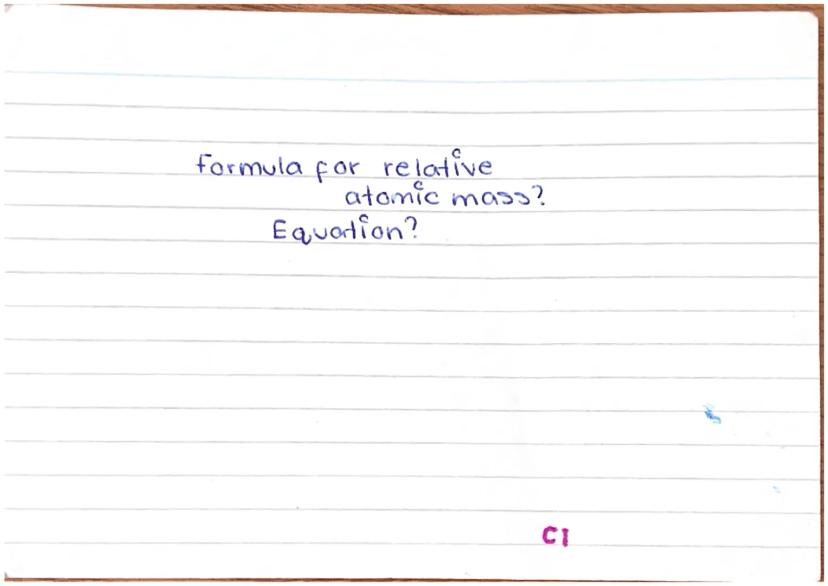 formula for relative
atomic mass?
Equation?
C1